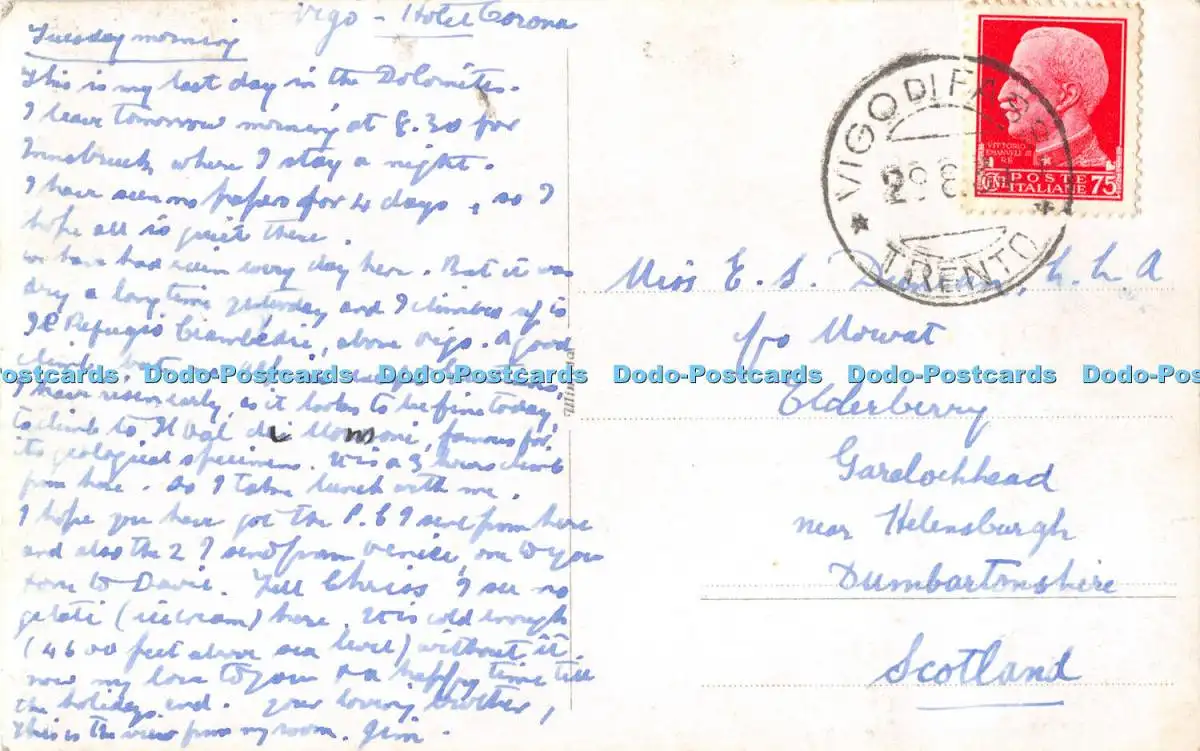 Vigo - Hotel Corona
Tuesday morning
This is my last day in the Dolomites.
I leave tomorrow morning at 8.30 for
Innsbruck where I stay a night.
I have seen no papers for 4 days, so I
hope all is quiet there.
We have had rain every day here. But it was
dry a long time yesterday and I climbed up to
Il Refugio Ciampedie, above Vigo. A good
climb, but
I have risen early, as it looks to be fine today,
to climb to Il Val di Monzoni, famous for
its geological specimens. It is a 3 hours climb
from here. So I take lunch with me.
I hope you have got the P.C I sent from here
and also the 2 I send from Venice, one to you
& one to Davie. Tell Chriss I see no
gelati (icecream) here. It is cold enough
(4600 feet above sea level) without it.
Now my love to you & a happy time till
the holidays end. Your loving brother,
This is the view from my room. Jim.
VIGO DI FASSA
29 8
TRENTO
VITTORIO
EMANUELE III
RE
POSTE
ITALIANE 75
Miss E. S. Duncan, L.L.A
c/o Mowat
Elderberry
Garelochhead
near Helensburgh
Dumbartonshire
Scotland
Dodo-Postcards Dodo-Postcards Dodo-Postcards Dodo-Postcards Dodo-Postcards